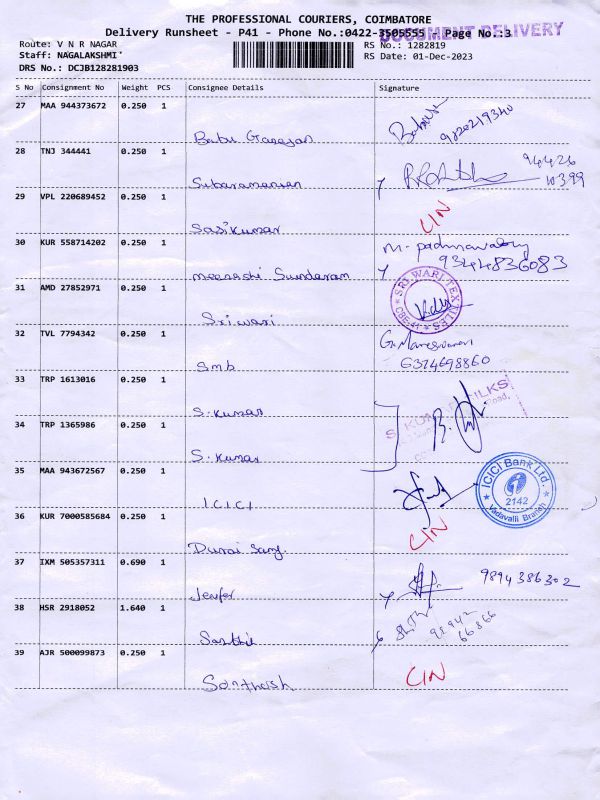 THE PROFESSIONAL COURIERS, COIMBATORE
DOCUMENT DELIVERY
Delivery Runsheet - P41 - Phone No.:0422-3505555 - Page No.:3
Route: V N R NAGAR
RS No.: 1282819
Staff: NAGALAKSHMI
RS Date: 01-Dec-2023
DRS No.: DCJB128281903
S No Consignment No Weight PCS Consignee Details Signature
27 MAA 944373672 0.250 1
Babu Ganesan
9820219340
28 TNJ 344441 0.250 1
Subaramanian
94426
10399
29 VPL 220689452 0.250 1
Sasikumar CIN
30 KUR 558714202 0.250 1
meenashi Sundaram
9344836083
31 AMD 27852971 0.250 1
Sriwari
SRI WARI TEXTILES
CBE-41
32 TVL 7794342 0.250 1
Smb
6374698860
33 TRP 1613016 0.250 1
S. Kumar
34 TRP 1365986 0.250 1
S. Kumar
35 MAA 943672567 0.250 1
ICICI
ICICI Bank Ltd.
2142
Vadavalli Branch
36 KUR 7000585684 0.250 1
Durai CIN
37 IXM 505357311 0.690 1
Jenifer
9894386302
38 HSR 2918052 1.640 1
98942
66866
39 AJR 500099873 0.250 1
Santhosh CIN